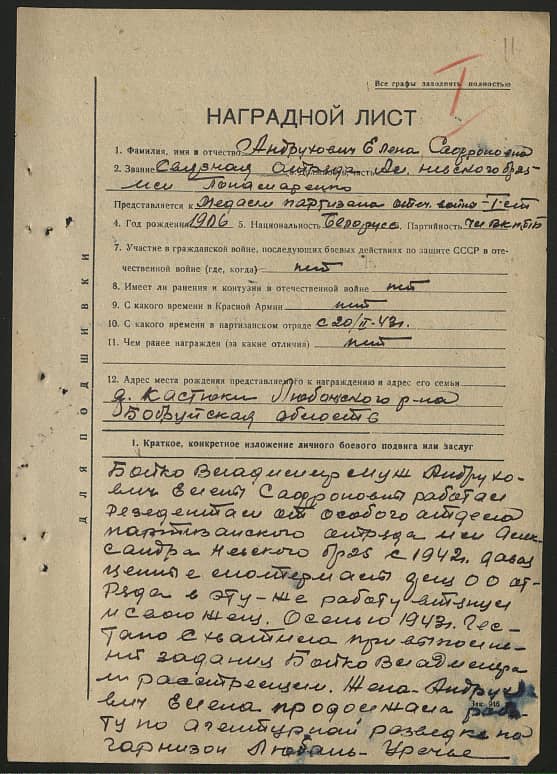 11
I
Все графы заполнять полностью
НАГРАДНОЙ ЛИСТ
1. Фамилия, имя и отчество Андрухович Елена Садроновна
2. Звание Связная отряда Ал. Невского бриг-
Представляется к Медали партизана отеч. войны - I-ст
4. Год рождения 1906 5. Национальность Белорусс 6. Партийность
7. Участие в гражданской войне, последующих боевых действиях по защите СССР в оте-
чественной войне (где, когда) нет
8. Имеет ли ранения и контузии в отечественной войне нет
9. С какого времени в Красной Армии нет
10. С какого времени в партизанском отряде с 20/II-43г.
11. Чем ранее награжден (за какие отличия) нет
12. Адрес места рождения представляемого к награждению и адрес его семьи
д. Кастюки Любанского р-на
Бобруйская область
1. Краткое, конкретное изложение личного боевого подвига или заслуг
Бойко Владимир муж Андрухо-
вич Елены Садроновны работал
резедентам от особого отдела
партизанского отряда им Алек-
сандра Невского бриг с 1942г. давал
ценные материалы для ОО от-
ряда в эту-же работу втянул
и свою жену. Осенью 1943г. Гес-
тапо схватила при выполне-
нии задания Бойко Владимира
и расстрелили. Жена-Андрухо-
вич Елена продолжала рабо-
ту по агентурной разведке на
гарнизон Любань-Уречье
ДЛЯ ПОДШИВКИ